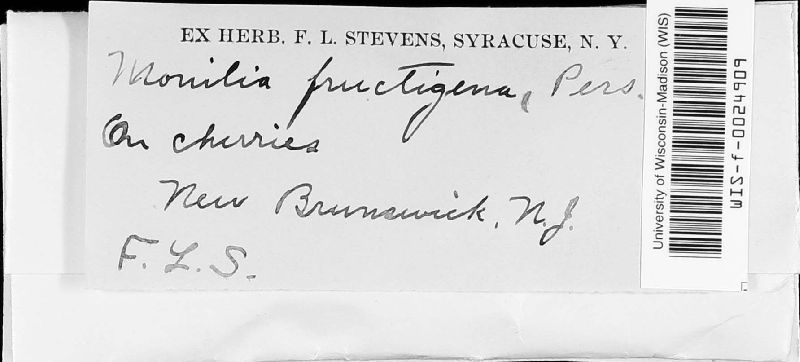 EX HERB. F. L. STEVENS, SYRACUSE, N. Y.
Monilia fructigena, Pers.
On cherries
New Brunswick, N.J.
F. L. S.
University of Wisconsin-Madison (WIS)
WIS-f-0024909